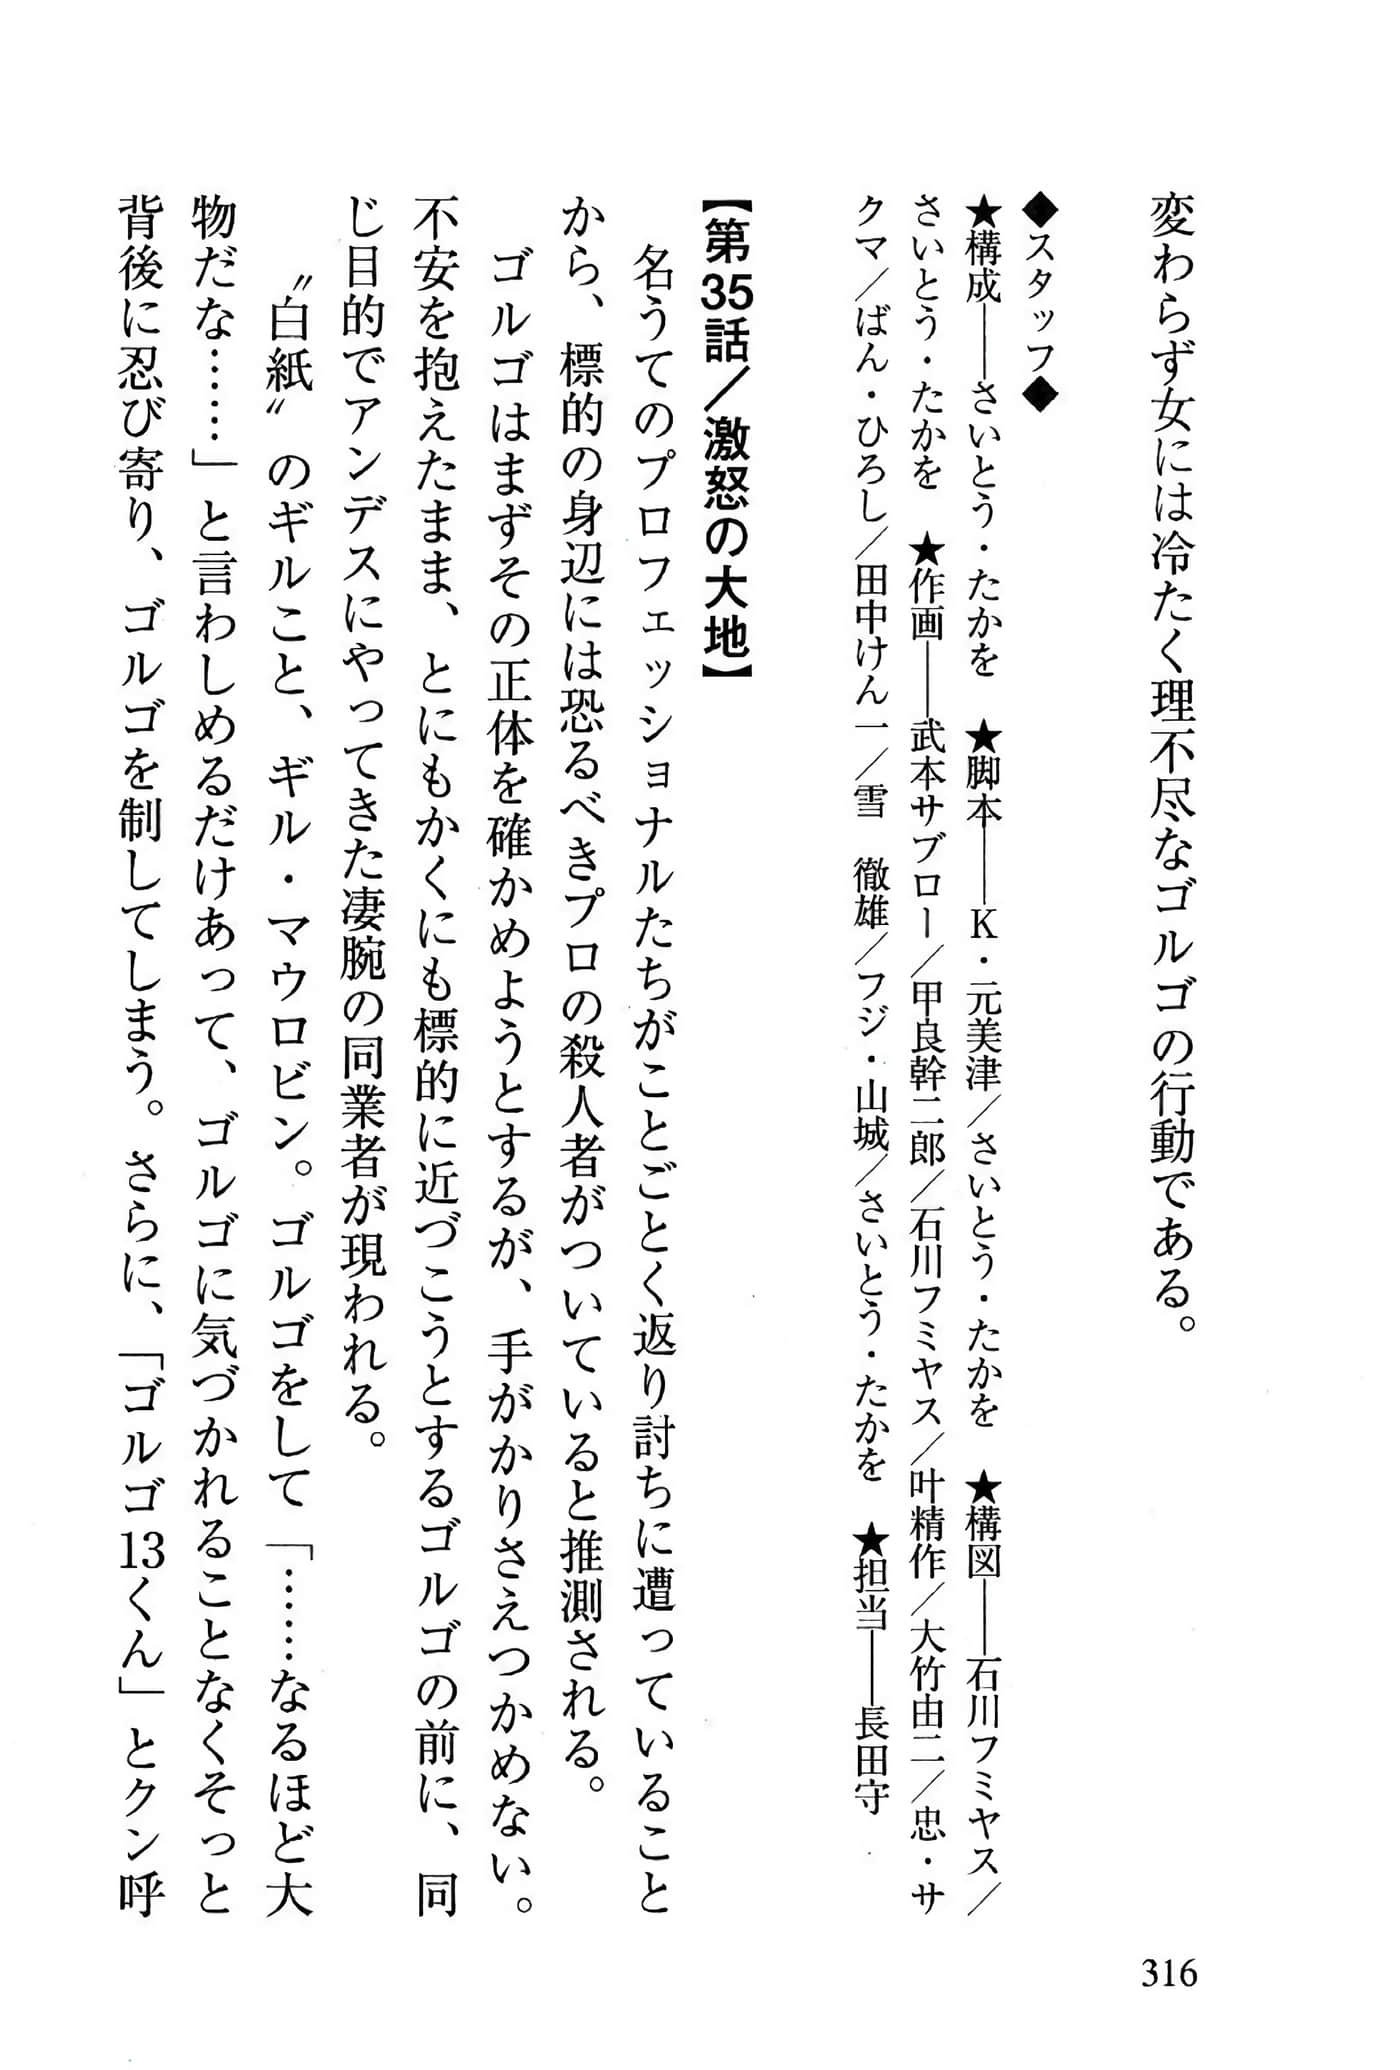 変わらず女には冷たく理不尽なゴルゴの行動である。
◆スタッフ◆
★構成――さいとう・たかを　★脚本――K・元美津／さいとう・たかを　★構図――石川フミヤス／
さいとう・たかを　★作画――武本サブロー／甲良幹二郎／石川フミヤス／叶精作／大竹由二／忠・サ
クマ／ばん・ひろし／田中けん一／雪　徹雄／フジ・山城／さいとう・たかを　★担当――長田守
【第35話／激怒の大地】
　名うてのプロフェッショナルたちがことごとく返り討ちに遭っていること
から、標的の身辺には恐るべきプロの殺人者がついていると推測される。
　ゴルゴはまずその正体を確かめようとするが、手がかりさえつかめない。
不安を抱えたまま、とにもかくにも標的に近づこうとするゴルゴの前に、同
じ目的でアンデスにやってきた凄腕の同業者が現われる。
　〝白紙〟のギルこと、ギル・マウロビン。ゴルゴをして「……なるほど大
物だな……」と言わしめるだけあって、ゴルゴに気づかれることなくそっと
背後に忍び寄り、ゴルゴを制してしまう。さらに、「ゴルゴ13くん」とクン呼
316